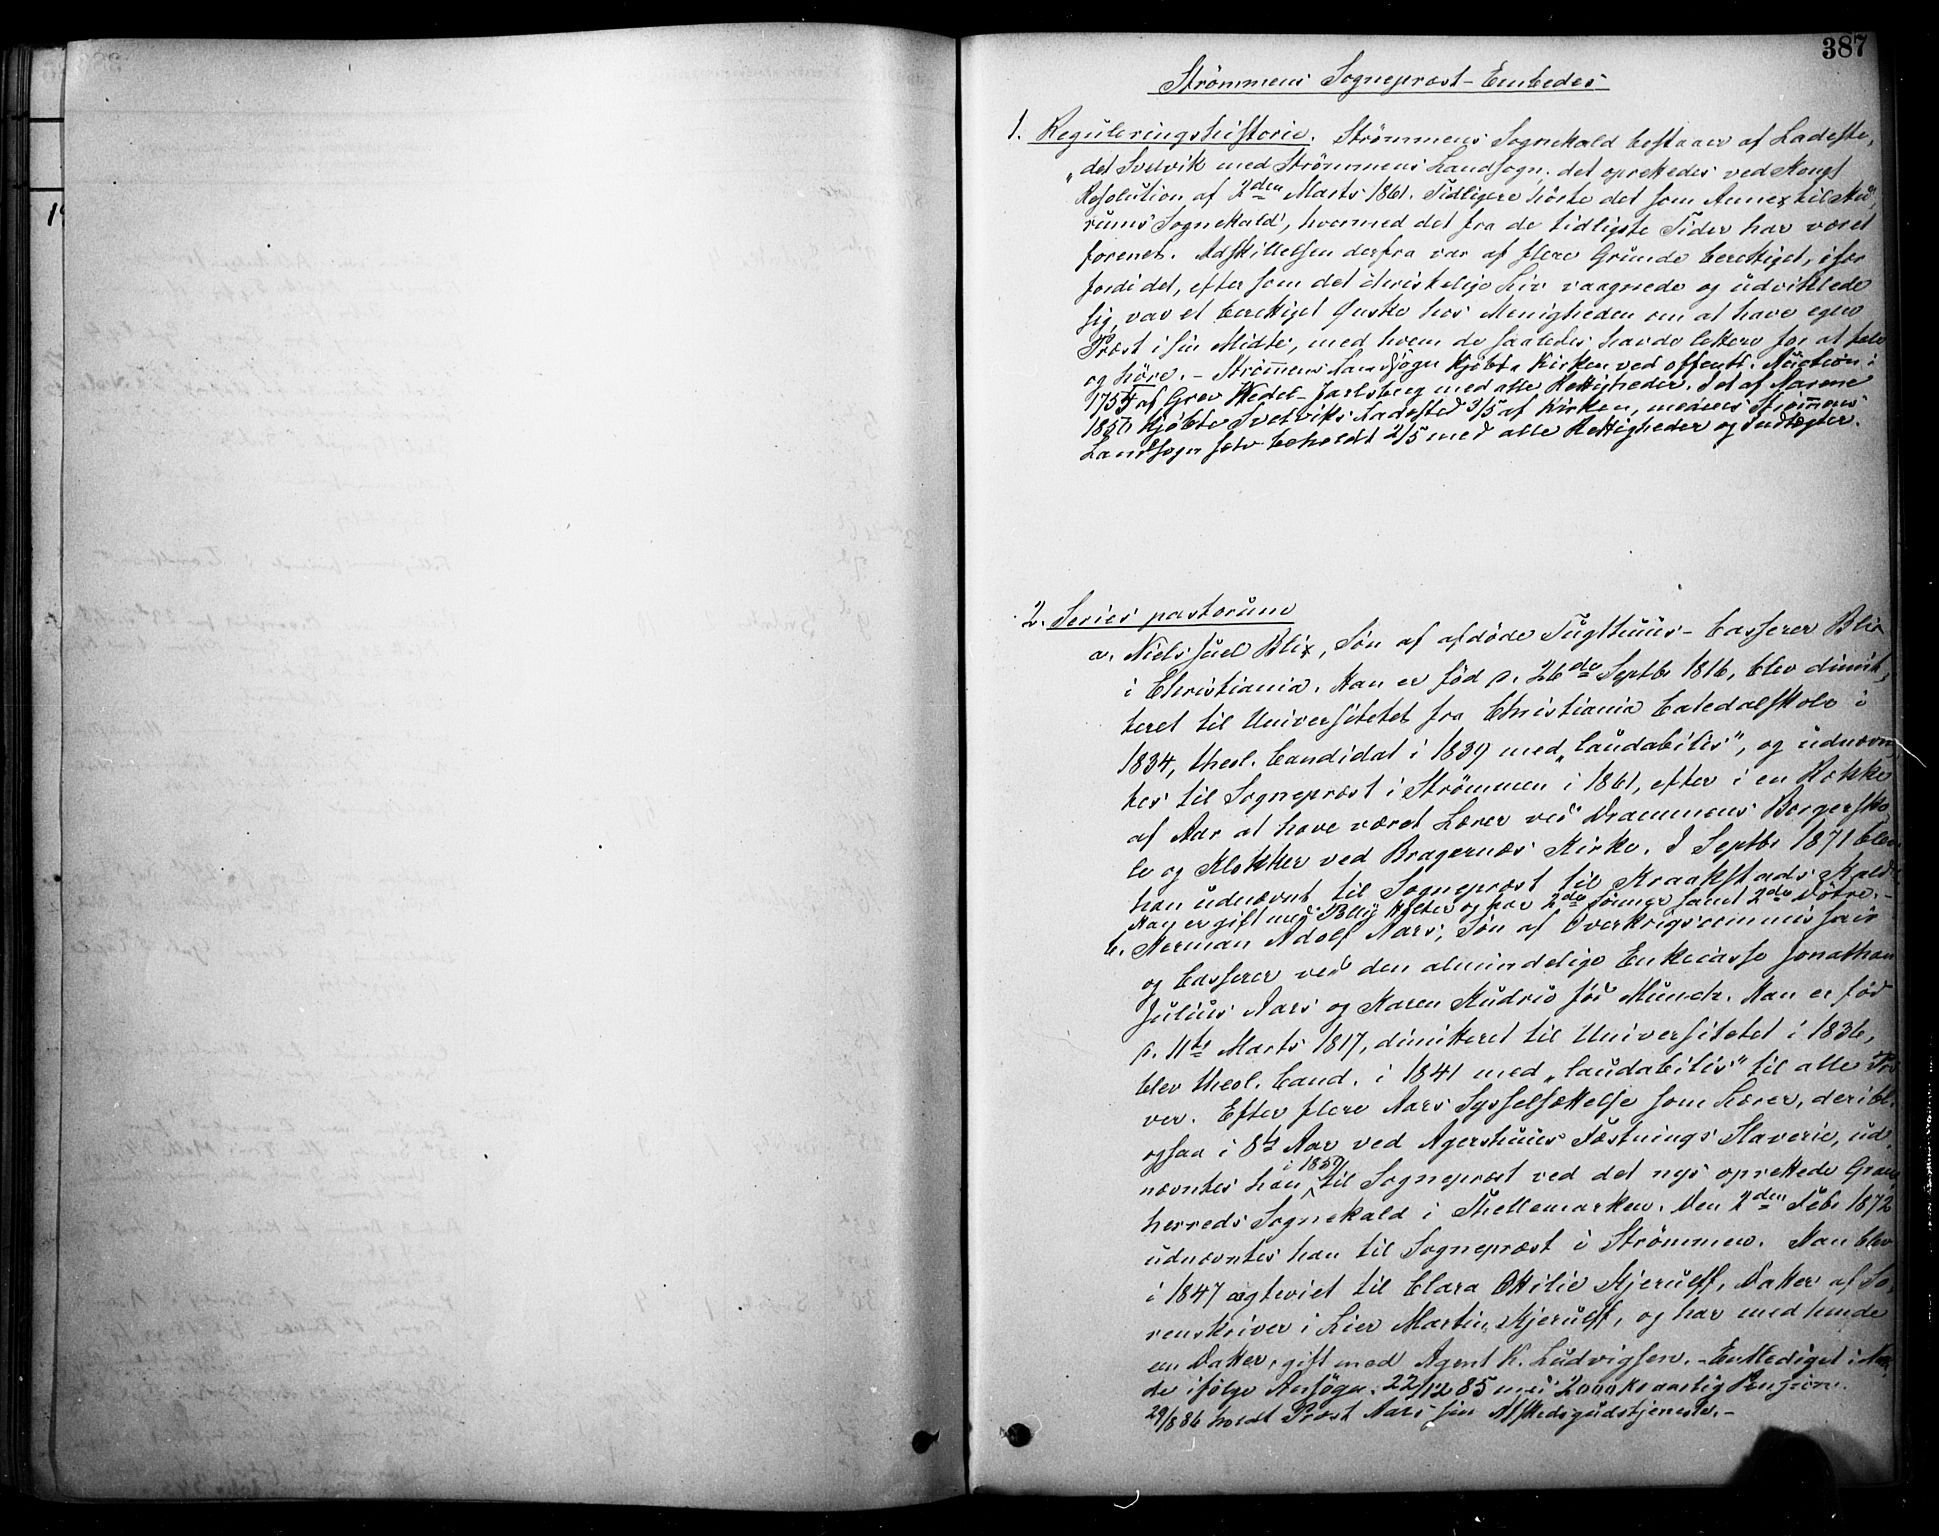 387
Strömmens Sognepræst-Embede
1. Reguleringshistorie. Strömmens Sognekald bestaaer af Ladeste,
"det Svelvik med Strömmens Landsogn; det oprettedes ved Kongl
Resolution af 2den Marts 1861. Tidligere hörte det som Annex til Hu,
rums Sognekald, hvormed det fra de tidligste Tider har været
forenet. Adskillelsen derfra var af flere Grunde berettiget, især
fordi det, efter som det christelige Liv vaagnede og udviklede
sig, var et berettiget Ønske hos Menigheden om at have egen
Præst i sin Midte, med hvem de saaledes havde lettere for at tale
og höre. - Strömmens Landsogn kjöbte Kirken ved offentl. Auction i
175 af Grev Wedel-Jarlsberg med alle Rettigheder. I et af Aarene
185 kjöbte Svelviks Ladested 3/5 af Kirken, medens Strömmens
Landsogn selv beholdt 2/5 med alle Rettigheder og Indtægter.
2. Series pastorum
a. Niels Juel Blix, Sön af afdöde Tugthuus-Casserer Blix
i Christiania. Han er föd d. 26de Septbr 1816, blev dimit,
teret til Universitetet fra Christiania Catedalskole i
1834, theol. Candidat i 1839 med "laudabilis", og udnævn,
tes til Sognepræst i Strömmen i 1861, efter i en Række
af Aar at have været Lærer ved Drammens Borgersko
le og Klokker ved Bragernæs Kirke. I Septbr 1871 blev
han udnævnt til Sognepræst til Kraakstads Kald.
Han er gift med Holter og har 2de Sönner samt 2de Döttre. -
b. Herman Adolf Aars, Sön af Overkrigscommissair
og Casserer ved den almindelige Enkecasse Jonathan
Julius Aars og Karen Rudrud föd Munch. Han er föd
d. 11te Marts 1817, dimitteret til Universitetet i 1836,
blev theol. Cand. i 1841 med "laudabilis" til alle Prö
ver. Efter flere Aars Sysselsættelse som Lærer, deribl.
ogsaa i 8te Aar ved Agershuus Fæstnings Slaverie, ud,
nævntes han i 1859 til Sognepræst ved det nys oprettede Grans
herreds Sognekald i Thellemarken. Den 2den Febr 1872
udnævntes han til Sognepræst i Strömmen. Han blev
i 1847 ægteviet til Clara Ottilie Kjerulff, Datter af So,
renskriver i Lier Martin Kjerulff, og har med hende
en Datter, gift med Agent K. Ludvigsen. - Entlediget i Naa,
de ifölge Ansögn. 22/12 85 med 2000 Kr aarlig Pension.
29/8 86 holdt Præst Aars sin Afskedsgudstjeneste. -